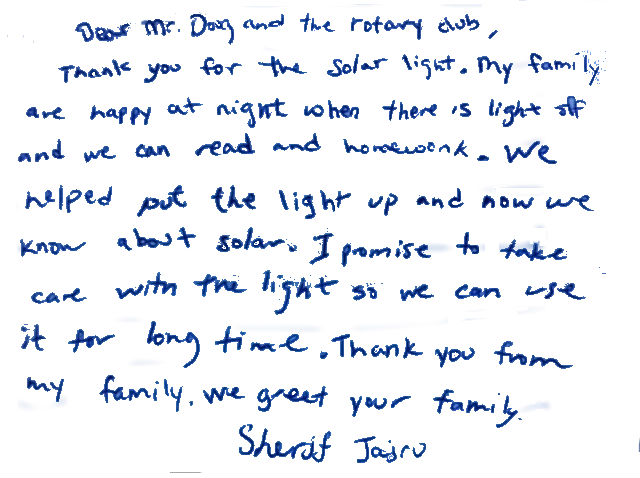 Dear Mr. Doug and the rotary club,
Thank you for the solar light. My family
are happy at night when there is light off
and we can read and homework. We
helped put the light up and now we
know about solar. I promise to take
care with the light so we can use
it for long time. Thank you from
my family. We greet your family.
Sherif